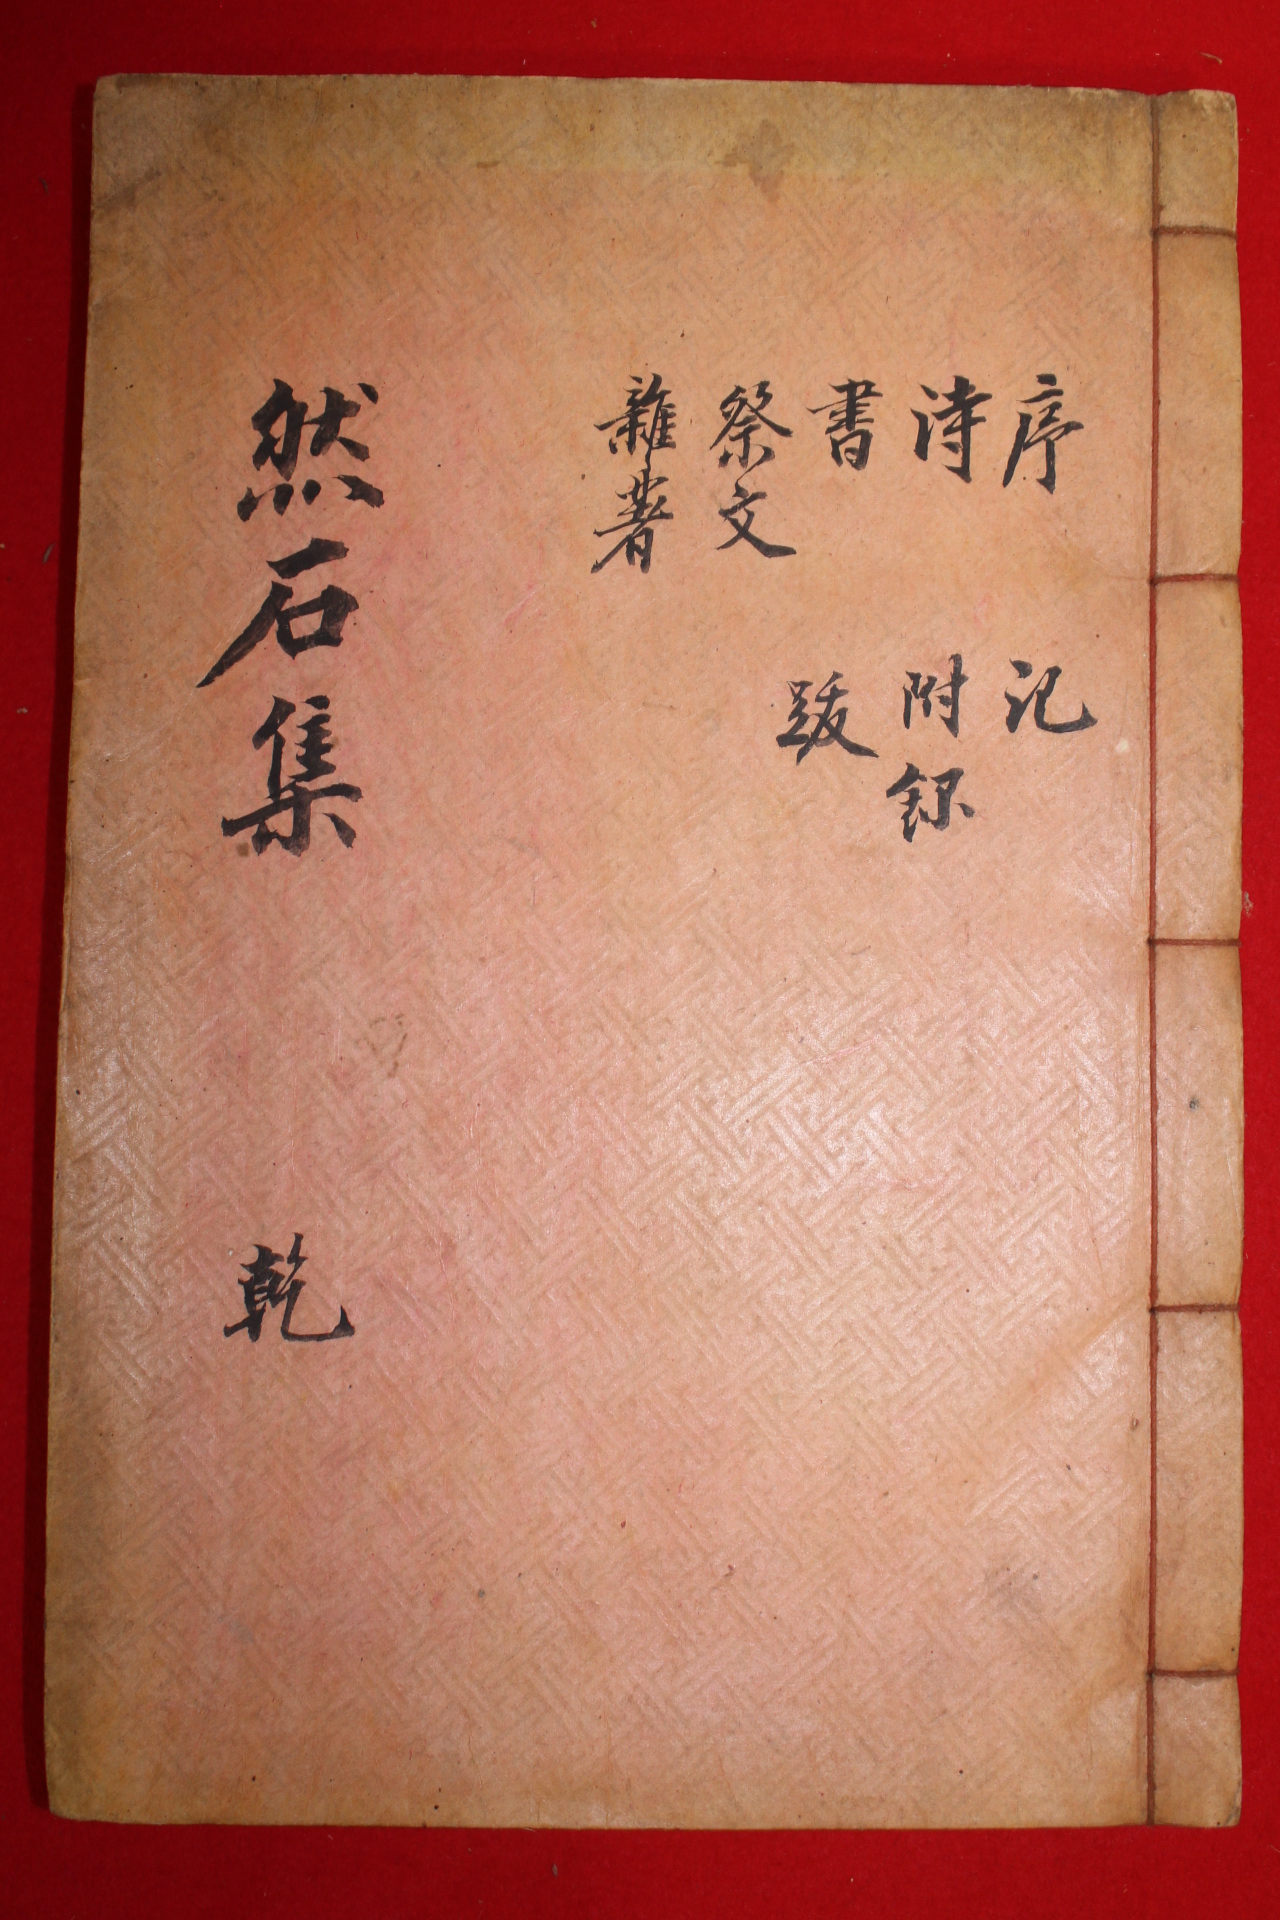 序
詩
書
祭文
雜著
記
附録
跋
然石集
乾